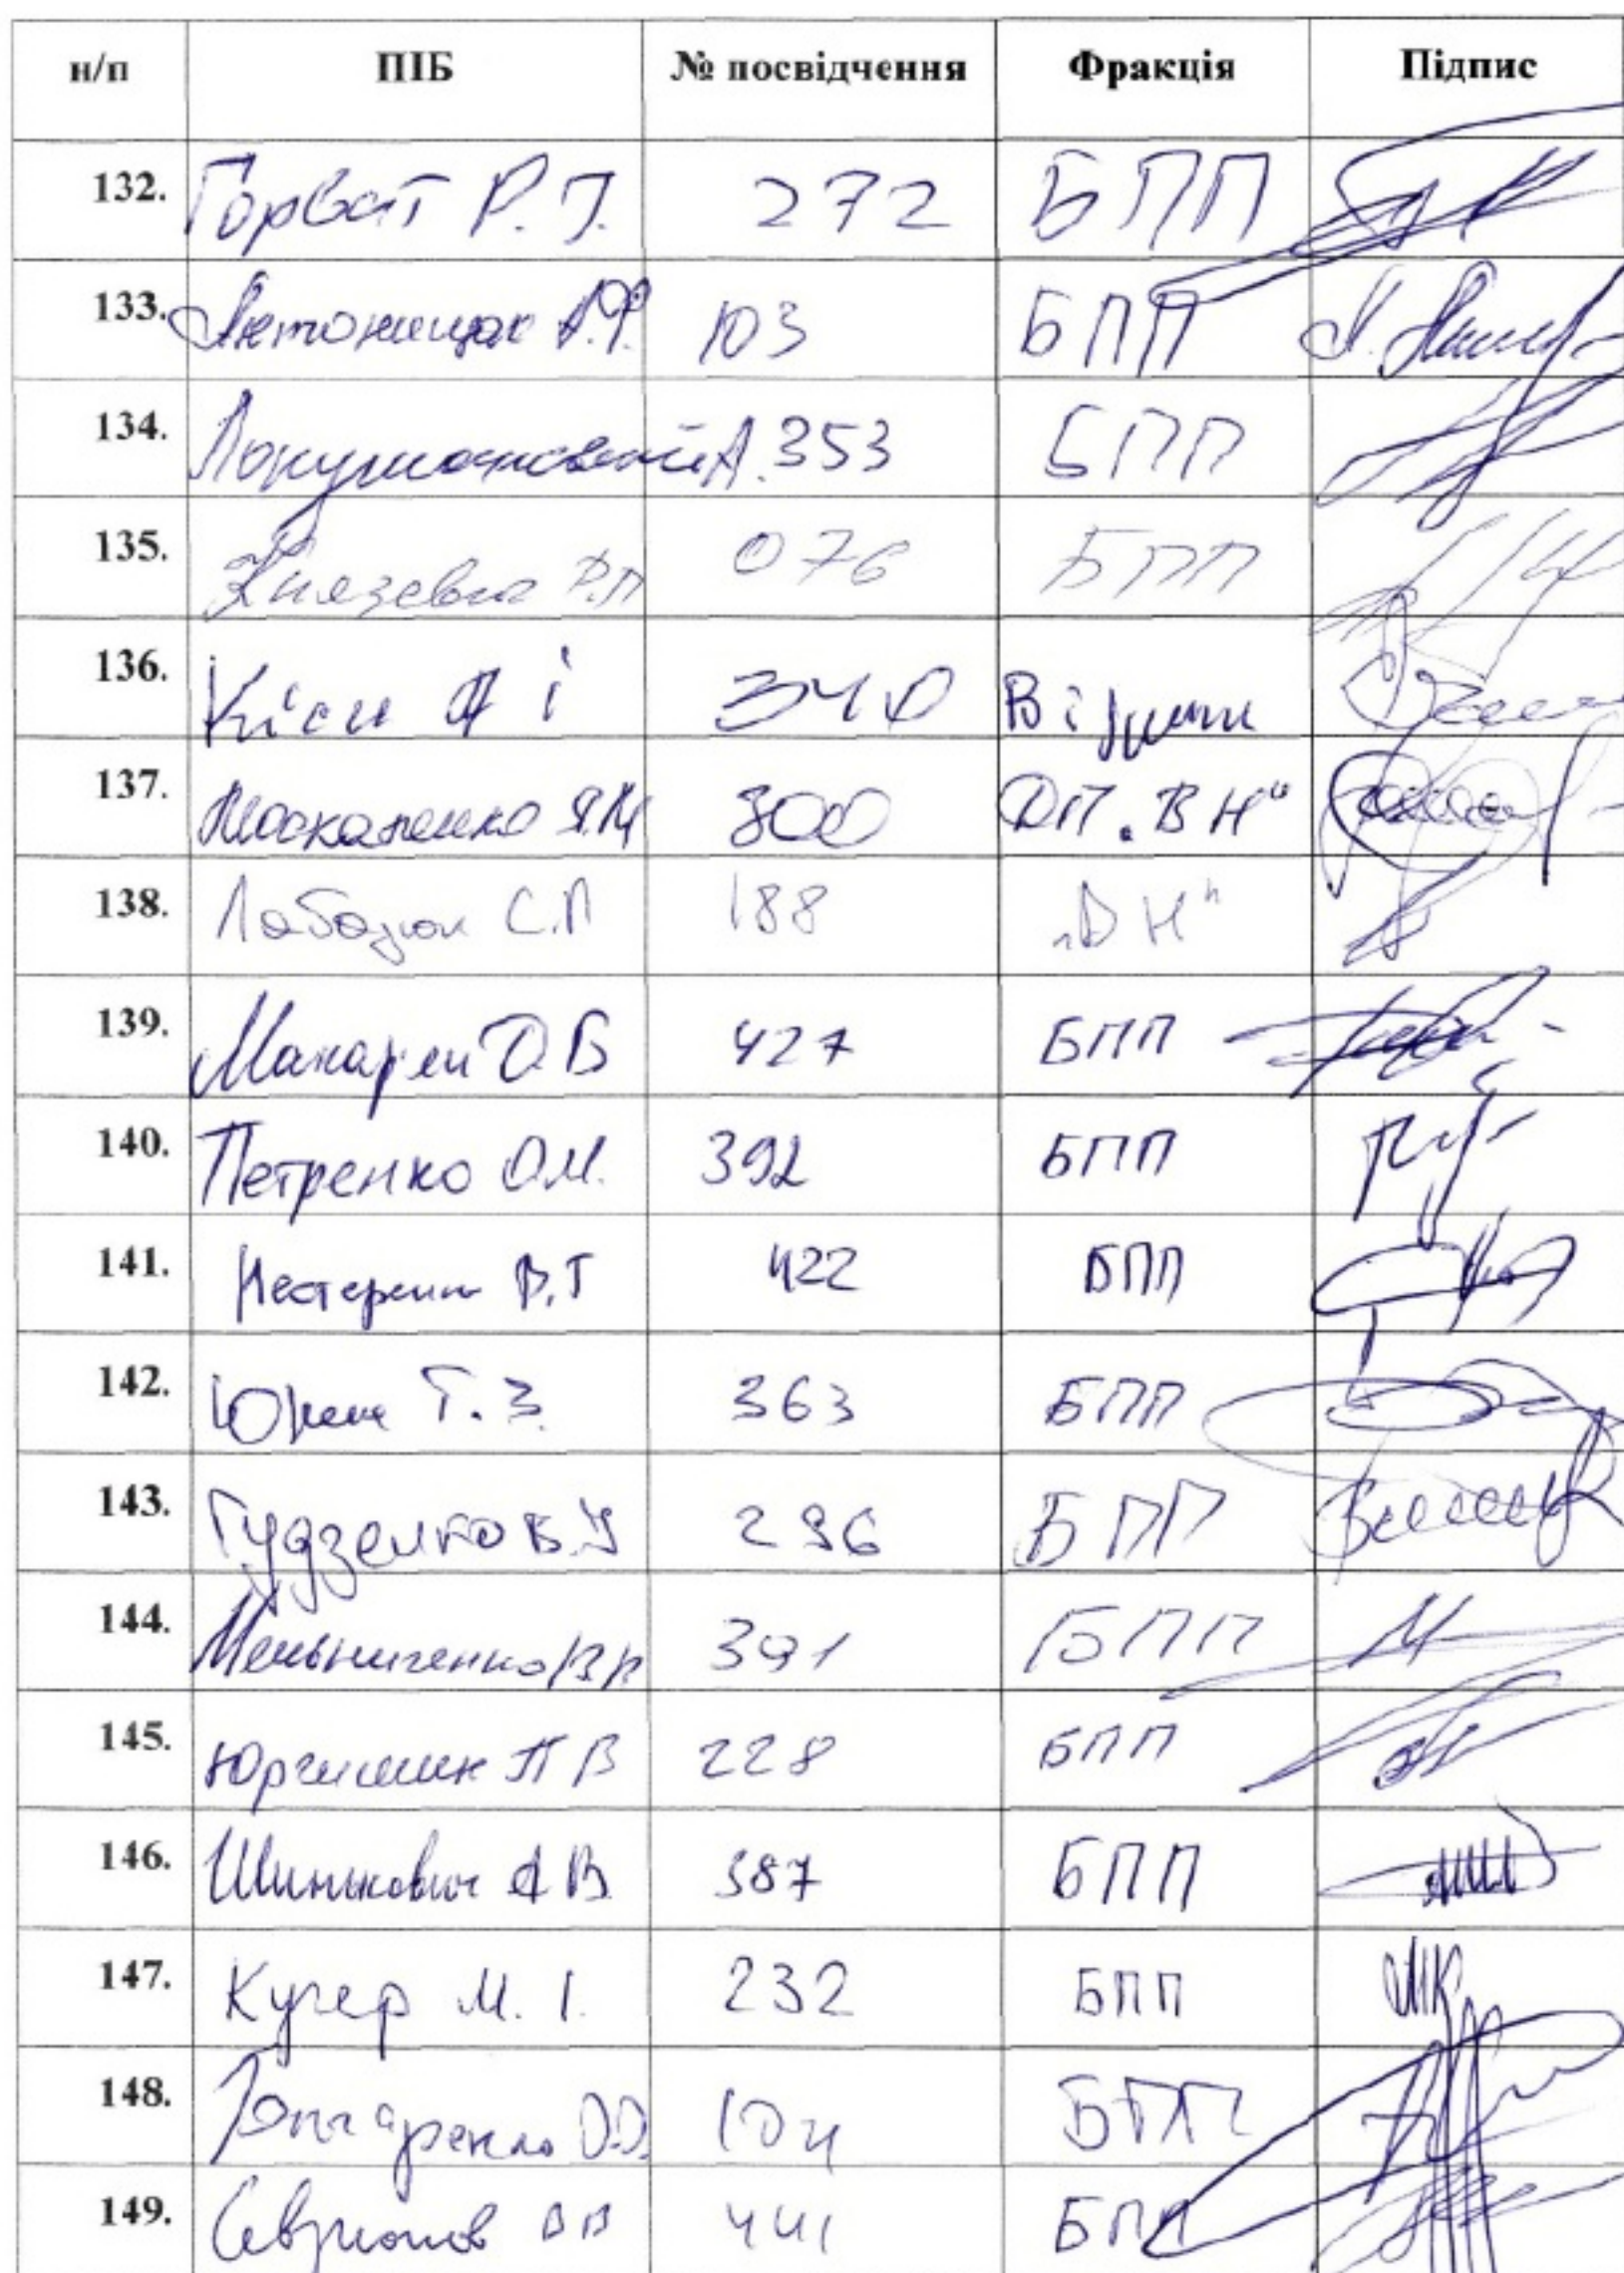 н/п ПІБ № посвідчення Фракція Підпис
132. Горват Р. І. 272 БПП
133. Антонищак А.Ф. 103 БПП
134. А. 353 БПП
135. Князевич Р.П 076 БПП
136. 340
137. Москаленко Я.М 300 ДП „ВН“
138. Лабазюк С.П 188 „ВН“
139. О В 427 БПП
140. Петренко О.М. 392 БПП
141. В.Г 422 БПП
142. Юрик Т. З. 363 БПП
143. Гудзенко В.І 296 БПП
144. Мельниченко В В 391 БПП
145. Юрчишин П В 228 БПП
146. Шинькович А В. 387 БПП
147. Кучер М. І. 232 БПП
148. Гончаренко О.О. 104 БПП
149. Севрюков В В 441 БПП